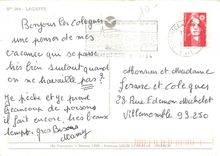 N° 364 - LAGAFFE
Bonjour les Collegues
une pensée de mes
vacance qui se passe
très bien surtout quand
on ne travaille pas?
Je pêche et je prend
beaucoup de poissons
il fait encore très beau
temps gros Bisous
Mamy
Monsieur et Madame
et Collegues
28 Rue Edmon Michelet
Villemomble
93.250